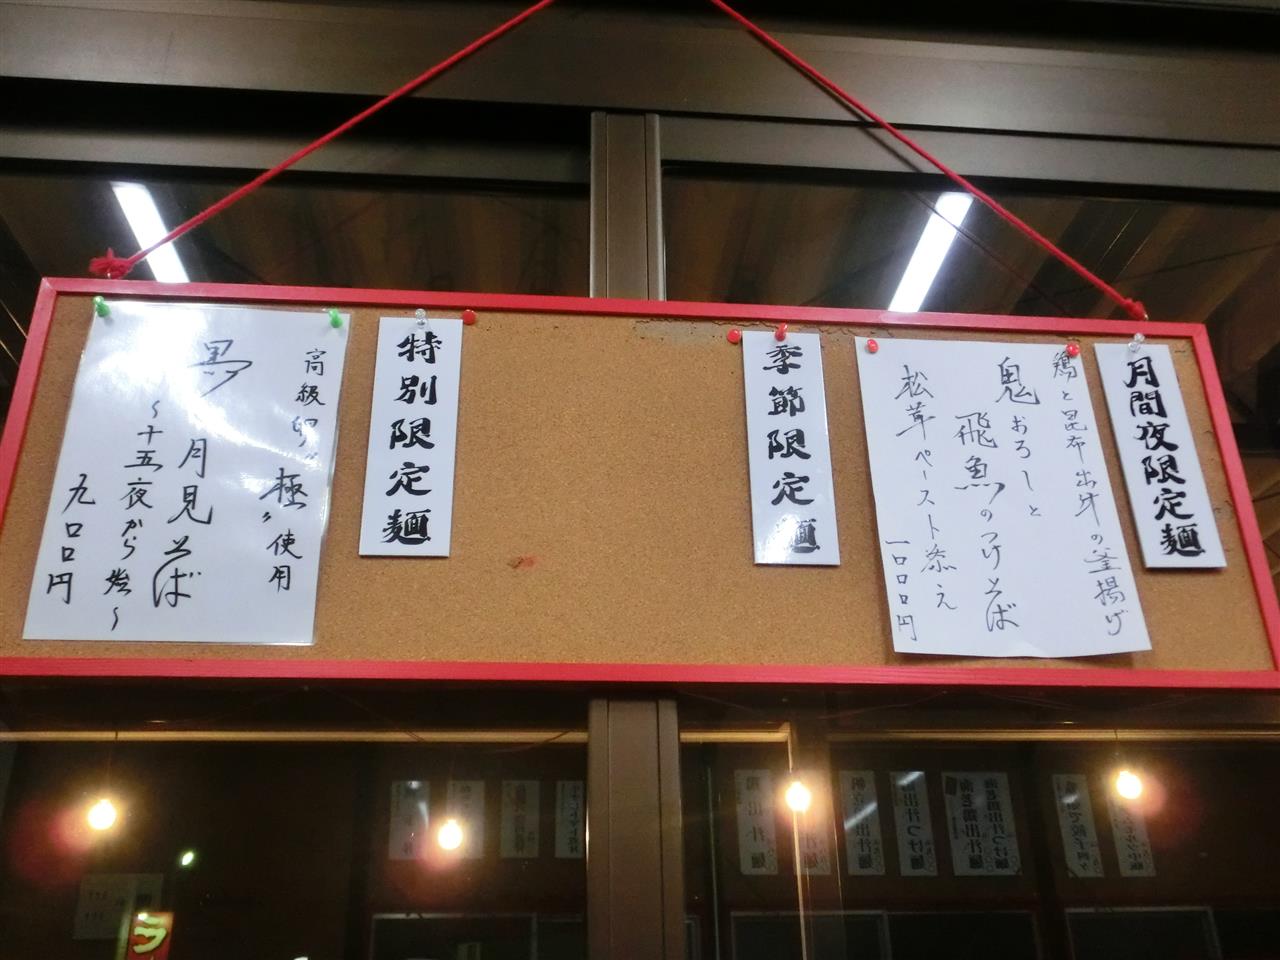 月間夜限定麺
鶏と昆布出汁の釜揚げ
鬼おろしと
飛魚のつけそば
松茸ペースト添え
一口口口円
季節限定麺
特別限定麺
高級卵〝極〟使用
黒
月見そば
～十五夜から始～
九口口円
ラ